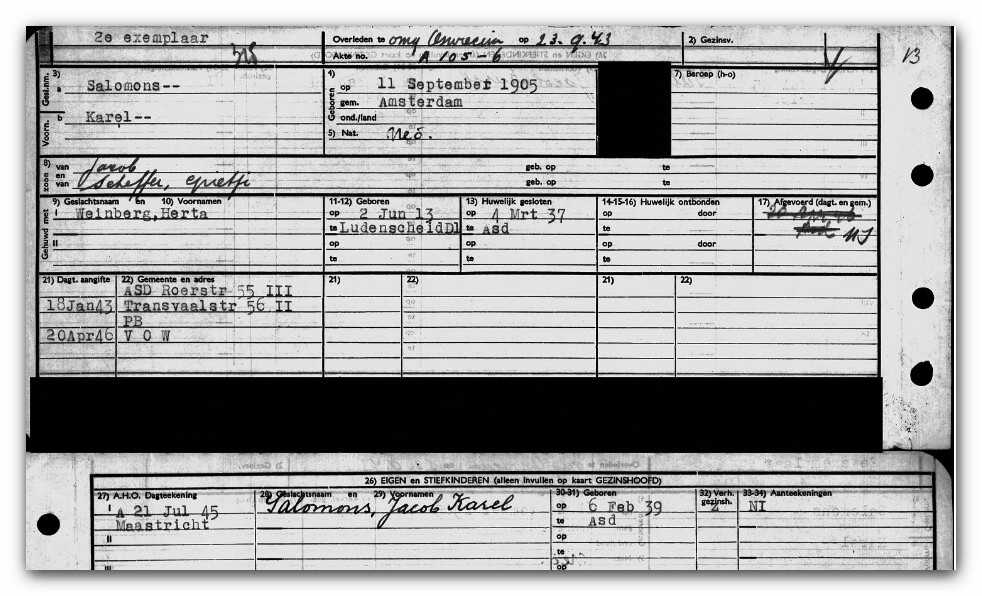 2e exemplaar
Overleden te omg Auschwitz op 23.9.43
Akte no. A 105-6
2) Gezinsv.
13
3)
Gesl.nm. a Salomons--
Voorn. b Karel--
4)
Geboren op 11 September 1905
gem. Amsterdam
ond./land
5) Nat. Ned.
7) Beroep (h-o)
8)
zoon van Jacob geb. op te
en
van Scheffer, Grietje geb. op te
9) Geslachtsnaam en 10) Voornamen
11-12) Geboren
13) Huwelijk gesloten
14-15-16) Huwelijk ontbonden
17) Afgevoerd (dagt. en gem.)
Gehuwd met
I Weinberg,Herta op 2 Jun 13 op 4 Mrt 37 op door
te LudenscheidDl te Asd te
NI
II op op op door
te te te
21) Dagt. aangifte 22) Gemeente en adres 21) 22) 21) 22)
ASD Roerstr 55 III
18Jan43 Transvaalstr 56 II
PB
20Apr46 V O W
26) EIGEN en STIEFKINDEREN (alleen invullen op kaart GEZINSHOOFD)
27) A.H.O. Dagteekening 28) Geslachtsnaam en 29) Voornamen 30-31) Geboren 32) Verh. gezinsh. 33-34) Aanteekeningen
I A 21 Jul 45 Salomons, Jacob Karel op 6 Feb 39 Z NI
Maastricht te Asd
II op
te
III op